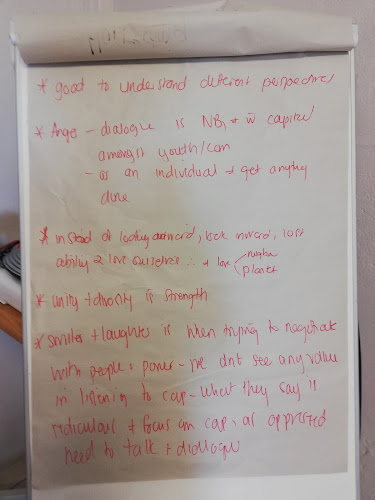 * good to understand different perspectives
* Anger - dialogue is NB, + w̄ capital
amongst youth/com
- as an individual get anything
done
* instead of looking outward, look inward, lost
ability 2 love ourselves ∴ + love neighbor
planet
* unity + diversity is strength
* smiles + laughter is when trying to negotiate
with people + power - ppl dnt see any value
in listening to cap - what they say is
ridiculous + focus on cap, as oppressed
need to talk + dialogue